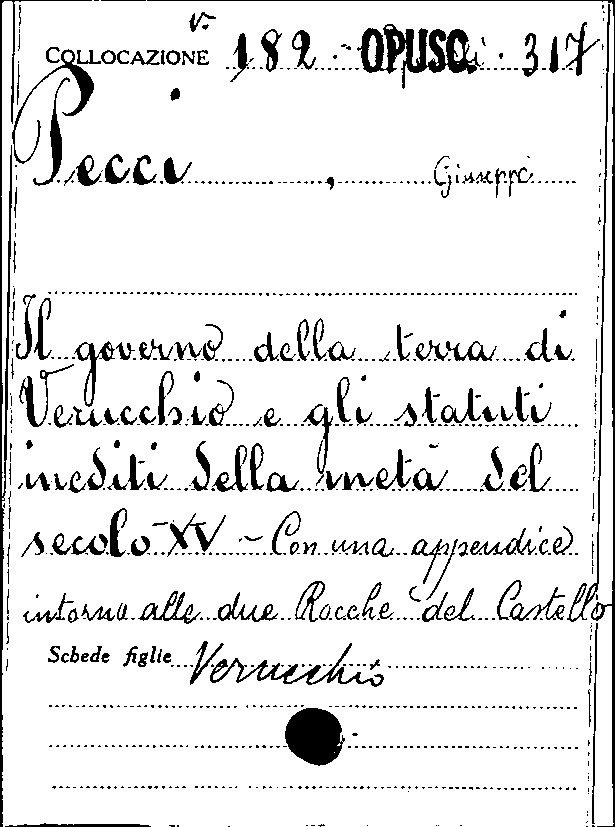 v.
COLLOCAZIONE 182 - OPUSC. 317
Pecci, Giuseppe
Il governo della terra di
Verucchio e gli statuti
inediti della metà del
secolo XV - Con una appendice
intorno alle due Rocche del Castello
Schede figlie Verucchio